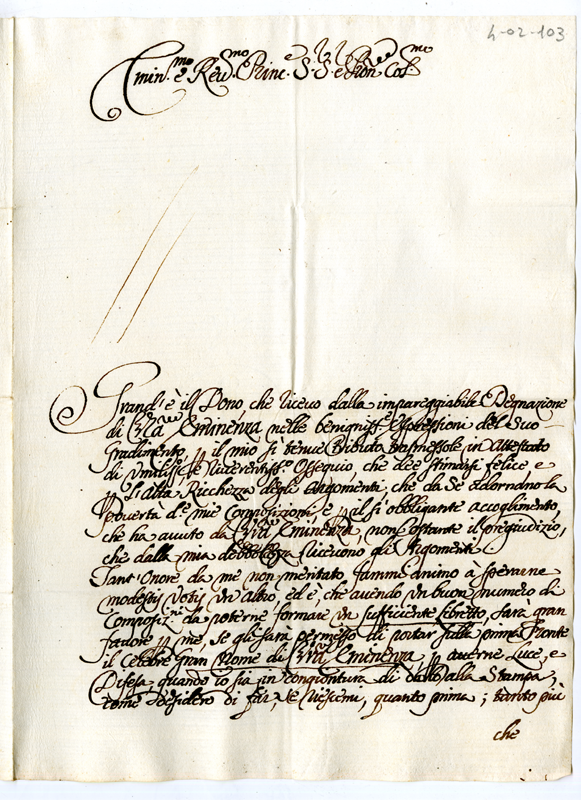 4-02-103
Emin.mo e Rev.mo Princ.e S. S. e Pron Col.mo
Grand'è il Dono, che ricevo dalla impareggiabile Degnazione
di V̄ra Eminenza nelle benigniss.e Espressioni del Suo
Gradimento, p il mio sì tenue Tributo trasmessole in Attestato
di Umiliss.o e Riverentiss.o Ossequio, che dee stimarsi felice, e
p l'Alta Ricchezza degli Argomenti, che da Se adornano la
Povertà d.e mie Composizioni e p al sì obbligante accoglimento,
che ha avuto da V̄ra Eminenza, non ostante il pregiudizio,
che dalla mia debbolezza ricevono gli Argomenti.
Tant'Onore, da me non meritato, fammi animo à sperarne
modestis votis un altro, ed è, che avendo un buon numero di
Composiz.ni da poterne formare un sufficiente libretto, sarà gran
favore p me, se gli sarà permesso di portar sulla prima Fronte
il Celebre Gran Nome di V̄ra Eminenza, p averne Luce, e
Difesa quando io sia in congiontura di darlo alla Stampa,
come desidero di far, se riescemi, quanto prima; tanto più
che